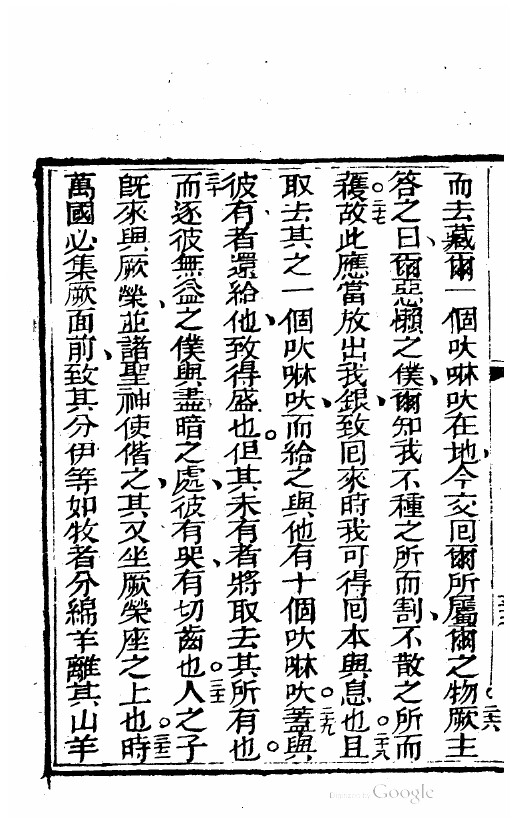 而去藏爾一個吠啉吠在地、今交囘爾所屬爾之物。二六厥主
答之曰、爾惡懶之僕、爾知我不種之所而割、不散之所而
穫。二七故此應當放出我銀、致囘來時我可得囘本與息也。二八且
取去其之一個吠啉吠、而給之與他有十個吠啉吠。二九蓋與
彼有者還給他、致得盛也。但其未有者將取去其所有也。
三十而逐彼無益之僕與盡暗之處、彼有哭、有切齒也。三一人之子
旣來與厥榮、並諸聖神使偕之、其又坐厥榮座之上也。三二時
萬國必集厥面前、致其分伊等如牧者分綿羊離其山羊
Digitized by Google